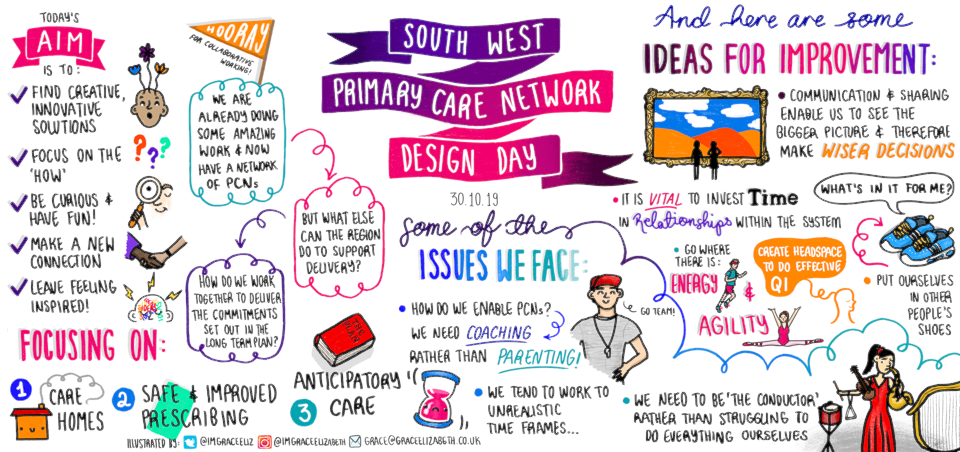 TODAY'S
AIM
IS TO:
FIND CREATIVE,
INNOVATIVE
SOLUTIONS
FOCUS ON THE
'HOW'
BE CURIOUS &
HAVE FUN!
MAKE A NEW
CONNECTION
LEAVE FEELING
INSPIRED!
HOORAY
FOR COLLABORATIVE
WORKING!
WE ARE
ALREADY DOING
SOME AMAZING
WORK & NOW
HAVE A NETWORK
OF PCNs
BUT WHAT ELSE
CAN THE REGION
DO TO SUPPORT
DELIVERY?
HOW DO WE WORK
TOGETHER TO DELIVER
THE COMMITMENTS
SET OUT IN THE
LONG TERM PLAN?
FOCUSING ON:
1
CARE
HOMES
2
SAFE & IMPROVED
PRESCRIBING
3
ANTICIPATORY
CARE
ILLUSTRATED BY: @IMGRACEELIZ @IMGRACEELIZABETH GRACE@GRACEELIZABETH.CO.UK
SOUTH WEST
PRIMARY CARE NETWORK
DESIGN DAY
30.10.19
Some of the
ISSUES WE FACE:
HOW DO WE ENABLE PCNs?
WE NEED COACHING
RATHER THAN PARENTING!
GO TEAM!
WE TEND TO WORK TO
UNREALISTIC
TIME FRAMES...
And here are some
IDEAS FOR IMPROVEMENT:
COMMUNICATION & SHARING
ENABLE US TO SEE THE
BIGGER PICTURE & THEREFORE
MAKE WISER DECISIONS
IT IS VITAL TO INVEST Time
IN Relationships WITHIN THE SYSTEM
WHAT'S IN IT FOR ME?
PUT OURSELVES
IN OTHER
PEOPLE'S
SHOES
GO WHERE
THERE IS:
ENERGY
&
AGILITY
CREATE HEADSPACE
TO DO EFFECTIVE
QI
WE NEED TO BE 'THE CONDUCTOR'
RATHER THAN STRUGGLING TO
DO EVERYTHING OURSELVES